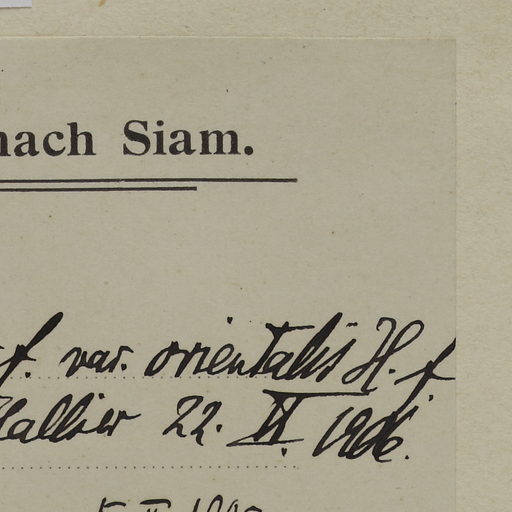 nach Siam.
f. var. orientalis H. f
Hallier 22. II. 1906.